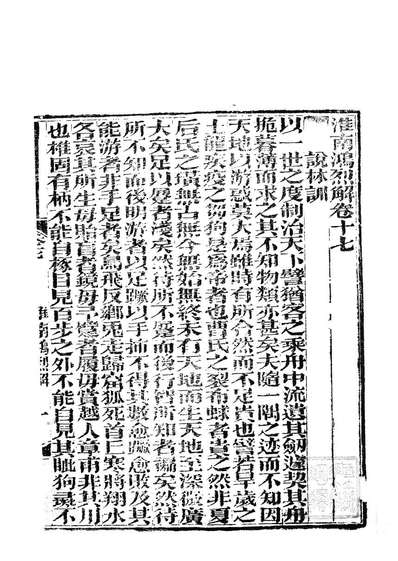 淮南鴻烈解卷十七
說林訓
以一世之度制治天下譬猶客之乘舟中流遺其劒遽契其舟
桅暮薄而求之其不知物類亦甚矣夫隨一隅之迹而不知因
天地以游惑莫大焉雖時有所合然而不足貴也譬若旱歲之
土龍疾疫之芻狗是爲帝者也曹氏之裂布蛷者貴之然非夏
后氏之璜無古無今無始無終未有天地而生天地至深微廣
大矣足以蹍者淺矣然待所不蹍而後行智所知者褊矣然待
所不知而後明游者以足蹶以手抪不得其數愈蹶愈敗及其
能游者非手足者矣鳥飛反鄉兔走歸窟狐死首丘寒將翔水
各哀其所生毋貽盲者鏡毋予躄者履毋賞越人章甫非其用
也椎固有柄不能自椓目見百步之外不能自見其眦狗彘不
淮南鴻烈解 一